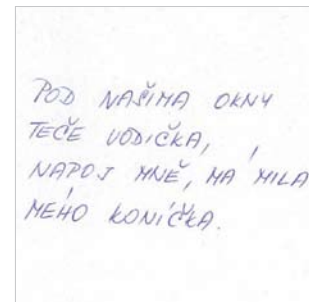 POD NAŠIMA OKNY
TEČE VODIČKA,
NAPOJ MNĚ, MÁ MILÁ
MÉHO KONÍČKA.